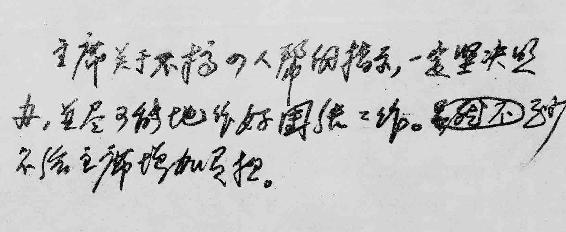 主席关于不搞四人帮的指示,一定坚决照
办,并尽可能地作好团结工作。至少
不给主席增加负担。